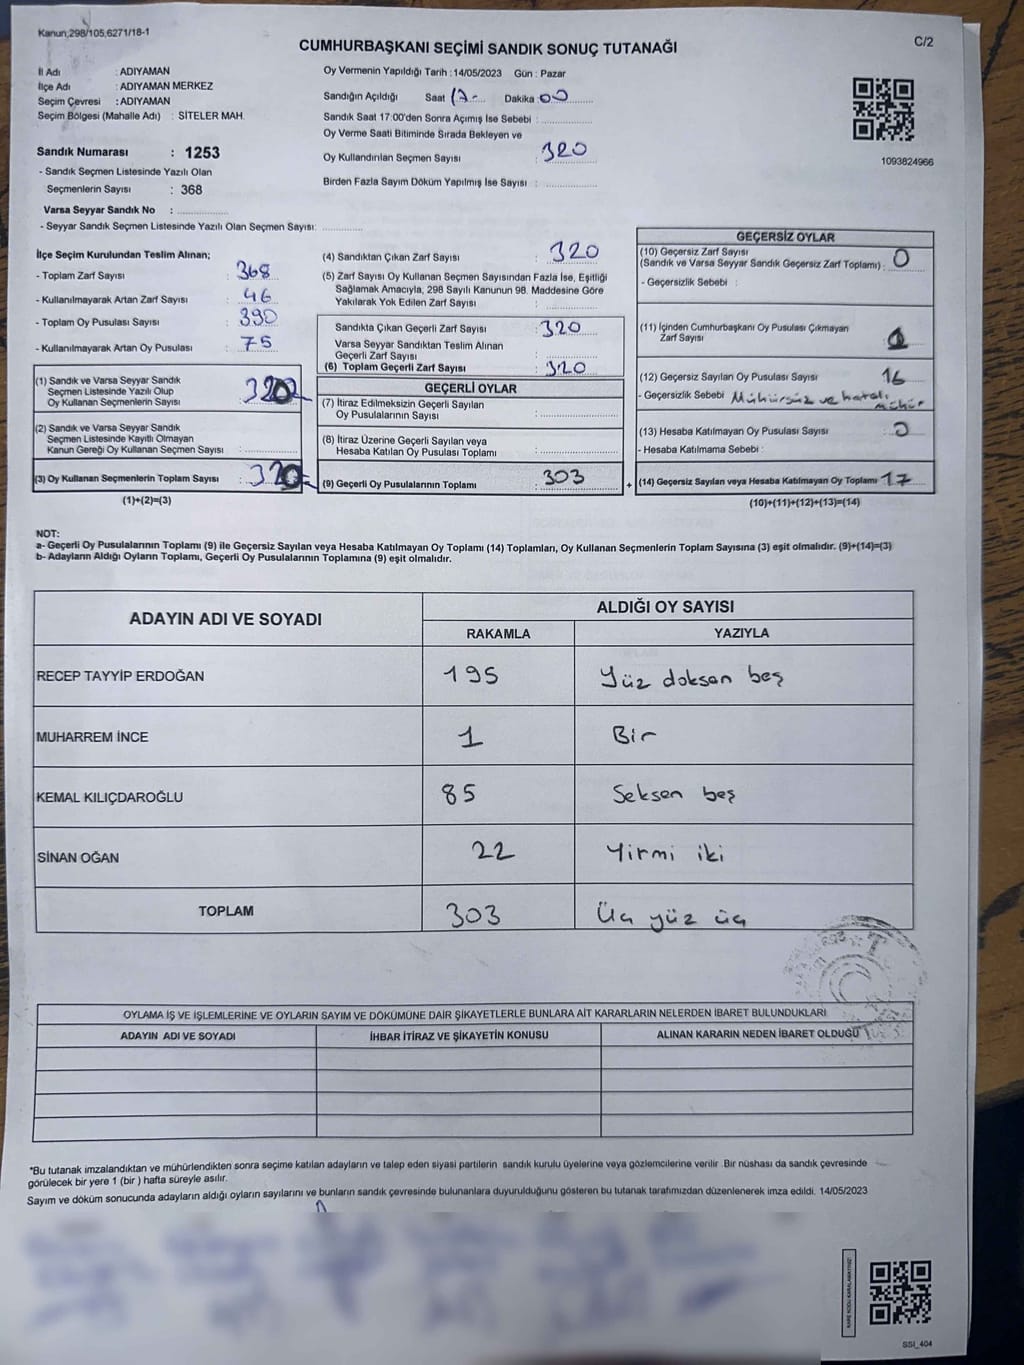 Kanun;298/105,6271/18-1
C/2
CUMHURBAŞKANI SEÇİMİ SANDIK SONUÇ TUTANAĞI
İl Adı : ADIYAMAN
İlçe Adı : ADIYAMAN MERKEZ
Seçim Çevresi : ADIYAMAN
Seçim Bölgesi (Mahalle Adı) : SİTELER MAH.
Sandık Numarası : 1253
- Sandık Seçmen Listesinde Yazılı Olan
Seçmenlerin Sayısı : 368
Varsa Seyyar Sandık No :
- Seyyar Sandık Seçmen Listesinde Yazılı Olan Seçmen Sayısı:
Oy Vermenin Yapıldığı Tarih :14/05/2023 Gün : Pazar
Sandığın Açıldığı Saat 17 Dakika 00
Sandık Saat 17:00'den Sonra Açımış İse Sebebi :
Oy Verme Saati Bitiminde Sırada Bekleyen ve
Oy Kullandırılan Seçmen Sayısı : 320
Birden Fazla Sayım Döküm Yapılmış İse Sayısı :
1093824966
İlçe Seçim Kurulundan Teslim Alınan;
- Toplam Zarf Sayısı : 368
- Kullanılmayarak Artan Zarf Sayısı : 46
- Toplam Oy Pusulası Sayısı : 390
- Kullanılmayarak Artan Oy Pusulası : 75
(1) Sandık ve Varsa Seyyar Sandık
Seçmen Listesinde Yazılı Olup
Oy Kullanan Seçmenlerin Sayısı : 320
(2) Sandık ve Varsa Seyyar Sandık
Seçmen Listesinde Kayıtlı Olmayan
Kanun Gereği Oy Kullanan Seçmen Sayısı :
(3) Oy Kullanan Seçmenlerin Toplam Sayısı : 320
(1)+(2)=(3)
(4) Sandıktan Çıkan Zarf Sayısı : 320
(5) Zarf Sayısı Oy Kullanan Seçmen Sayısından Fazla İse, Eşitliği
Sağlamak Amacıyla, 298 Sayılı Kanunun 98. Maddesine Göre
Yakılarak Yok Edilen Zarf Sayısı :
Sandıkta Çıkan Geçerli Zarf Sayısı : 320
Varsa Seyyar Sandıktan Teslim Alınan
Geçerli Zarf Sayısı :
(6) Toplam Geçerli Zarf Sayısı : 320
GEÇERLİ OYLAR
(7) İtiraz Edilmeksizin Geçerli Sayılan
Oy Pusulalarının Sayısı :
(8) İtiraz Üzerine Geçerli Sayılan veya
Hesaba Katılan Oy Pusulası Toplamı :
(9) Geçerli Oy Pusulalarının Toplamı : 303
+
GEÇERSİZ OYLAR
(10) Geçersiz Zarf Sayısı
(Sandık ve Varsa Seyyar Sandık Geçersiz Zarf Toplamı) : 0
- Geçersizlik Sebebi :
(11) İçinden Cumhurbaşkanı Oy Pusulası Çıkmayan
Zarf Sayısı : 1
(12) Geçersiz Sayılan Oy Pusulası Sayısı 16
- Geçersizlik Sebebi Mühürsüz ve hatalı
mühür
(13) Hesaba Katılmayan Oy Pusulası Sayısı : 0
- Hesaba Katılmama Sebebi :
(14) Geçersiz Sayılan veya Hesaba Katılmayan Oy Toplamı 17
(10)+(11)+(12)+(13)=(14)
NOT:
a- Geçerli Oy Pusulalarının Toplamı (9) ile Geçersiz Sayılan veya Hesaba Katılmayan Oy Toplamı (14) Toplamları, Oy Kullanan Seçmenlerin Toplam Sayısına (3) eşit olmalıdır. (9)+(14)=(3)
b- Adayların Aldığı Oyların Toplamı, Geçerli Oy Pusulalarının Toplamına (9) eşit olmalıdır.
ADAYIN ADI VE SOYADI
ALDIĞI OY SAYISI
RAKAMLA YAZIYLA
RECEP TAYYİP ERDOĞAN 195 Yüz doksan beş
MUHARREM İNCE 1 Bir
KEMAL KILIÇDAROĞLU 85 Seksen beş
SİNAN OĞAN 22 Yirmi iki
TOPLAM 303 Üç yüz üç
OYLAMA İŞ VE İŞLEMLERİNE VE OYLARIN SAYIM VE DÖKÜMÜNE DAİR ŞİKAYETLERLE BUNLARA AİT KARARLARIN NELERDEN İBARET BULUNDUKLARI
ADAYIN ADI VE SOYADI İHBAR İTİRAZ VE ŞİKAYETİN KONUSU ALINAN KARARIN NEDEN İBARET OLDUĞU
*Bu tutanak imzalandıktan ve mühürlendikten sonra seçime katılan adayların ve talep eden siyasi partilerin sandık kurulu üyelerine veya gözlemcilerine verilir .Bir nüshası da sandık çevresinde
görülecek bir yere 1 (bir ) hafta süreyle asılır.
Sayım ve döküm sonucunda adayların aldığı oyların sayılarını ve bunların sandık çevresinde bulunanlara duyurulduğunu gösteren bu tutanak tarafımızdan düzenlenerek imza edildi. 14/05/2023
SSI_404